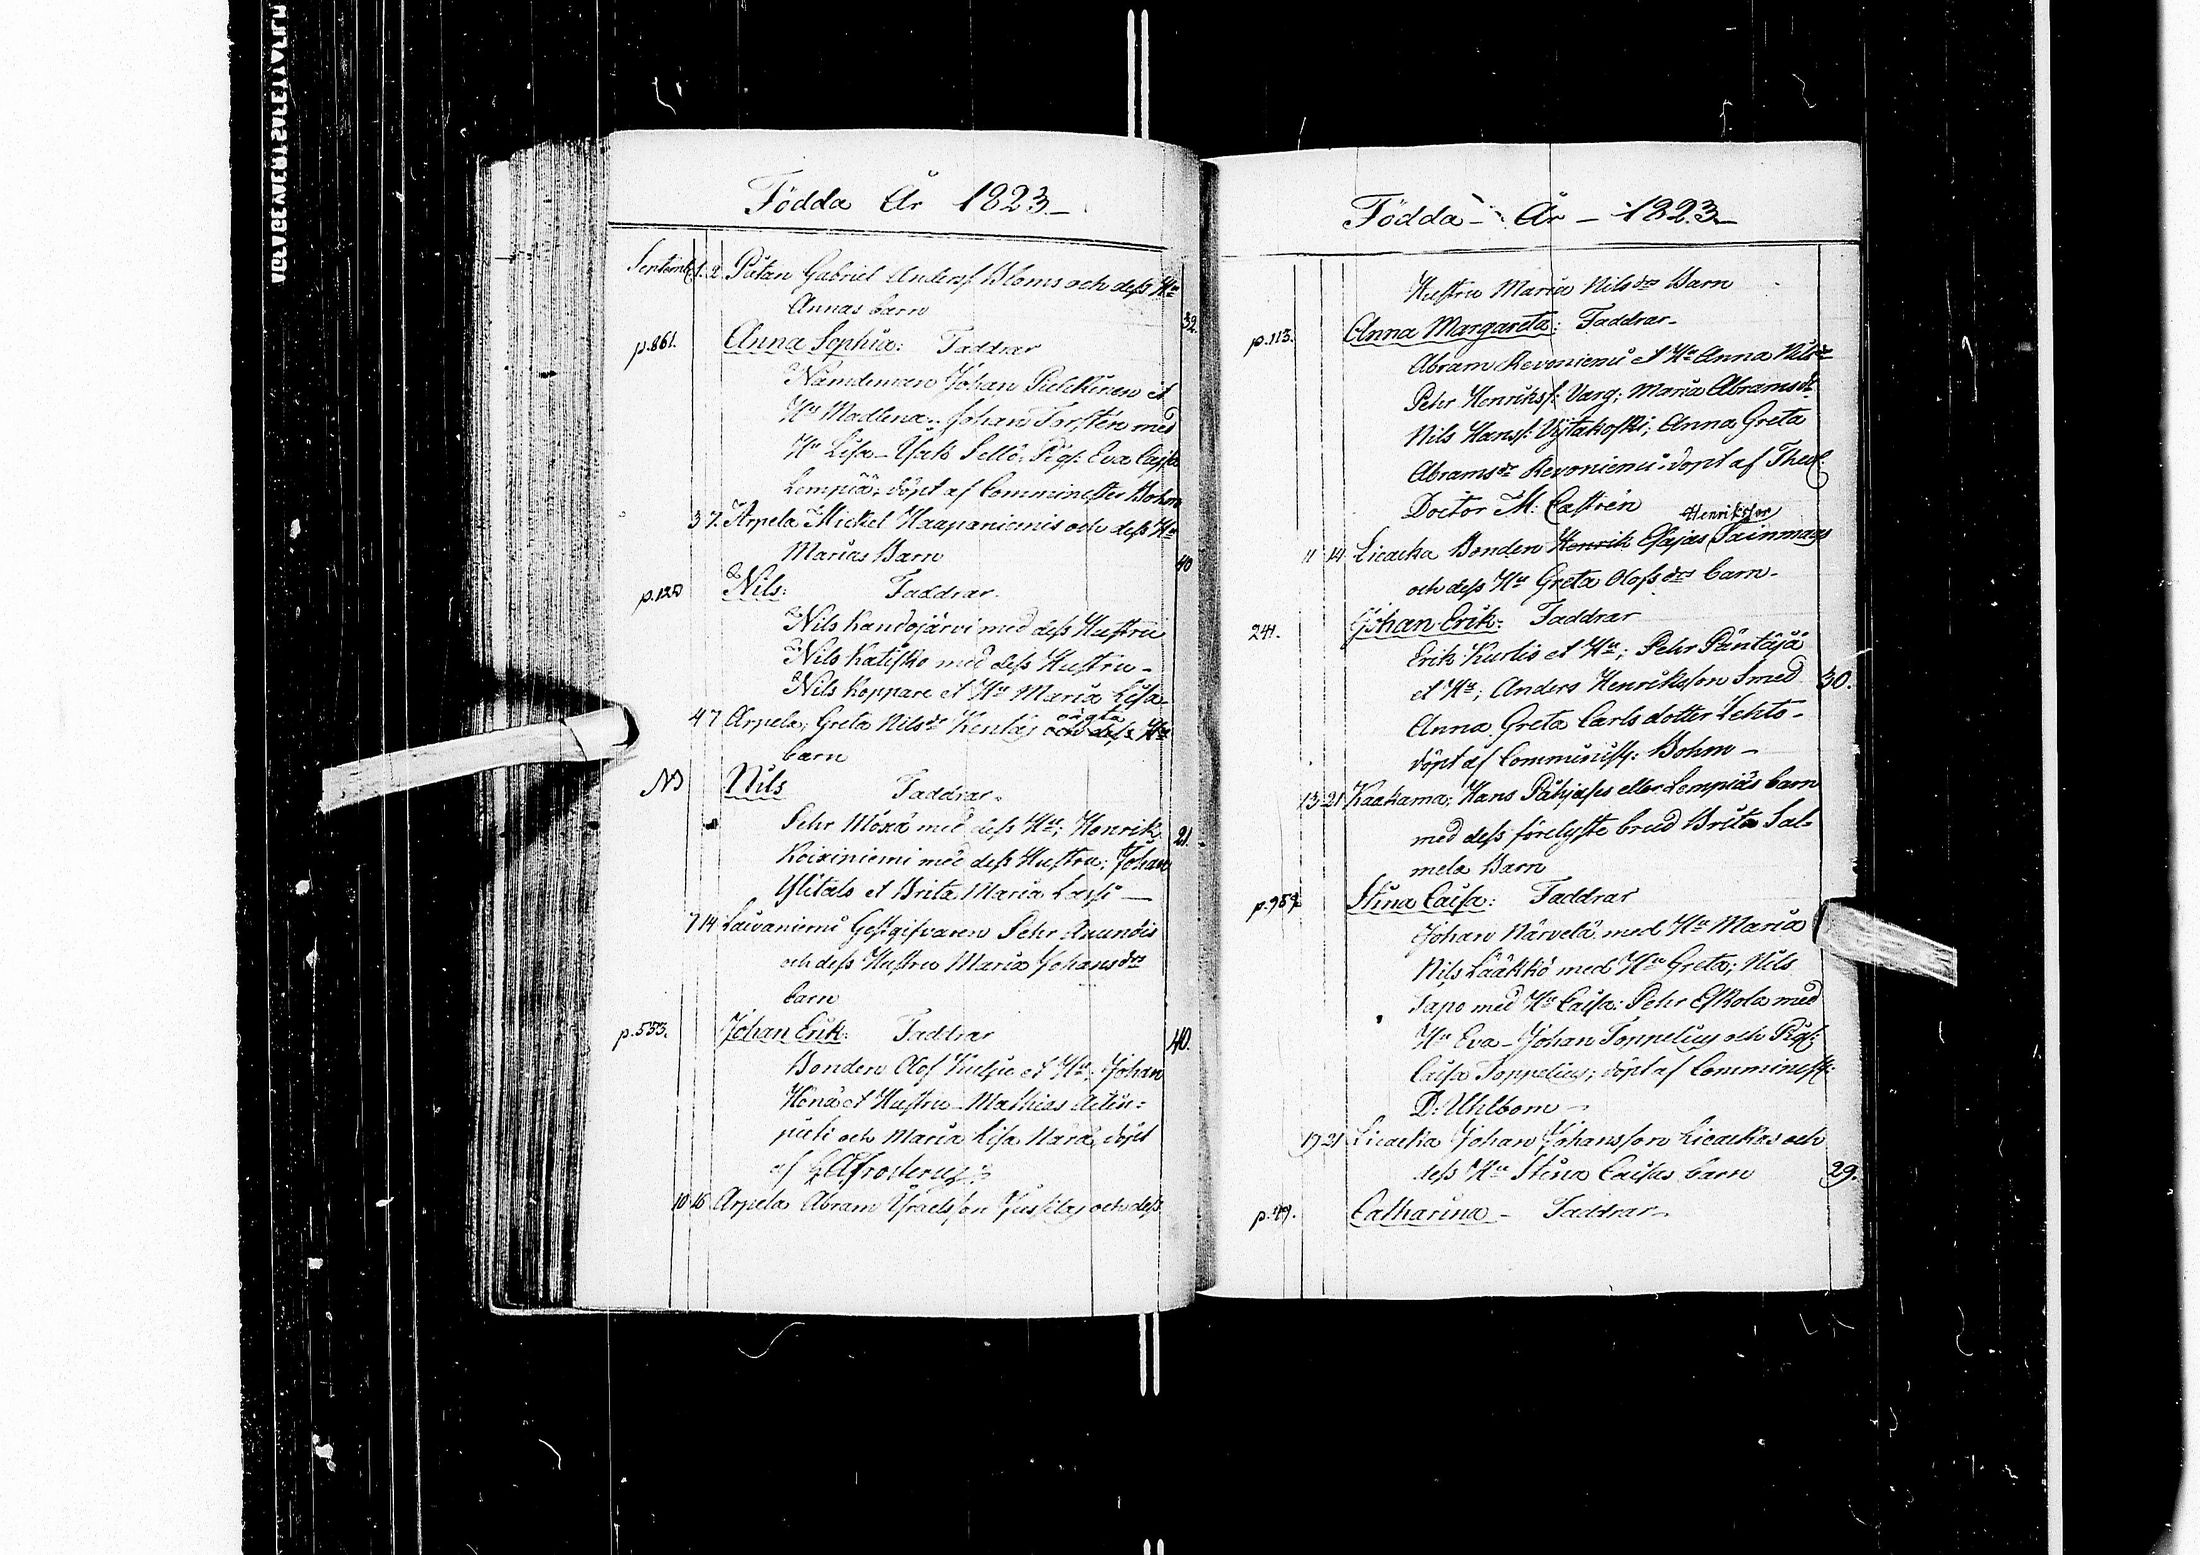 Födda År 1823
Septemb. 1. 2. Pätan Gabriel Anderss. Bloms och dess Hu
Annas barn
32.
p. 861. Anna Sophia: Faddrar
Nämdeman Johan et
Hu Madlena; Johan Torstén med
Hu Lisa Pig: Eva Cajsa
Lempiä; döpt af Comminister Bohm
3 7. Arpela Mickel Haapaniemis och dess Hu
Marias Barn
40
Nils: Faddrar.
Nils Kandojärvi med dess Hustru
Nils Katisko med dess Hustru
Nils Koppare et Hu Maria Lisa
4 7 Arpela; Greta Nilsdr oägta
barn
Nils Faddrar.
Pehr Möxä med dess Hu; Henrik 21.
Koiviniemi med dess Hustru; Johan
Ylitalo et Brita Maria
7 14 Laivaniemi Gestgifvaren Pehr Anundis
och dess Hustru Maria Johansdrs
barn
p. 553. Johan Erik: Faddrar
40.
Bonden Olof et Hu; Johan
et Hustru Mathias
och Maria Lisa döpt
af
10 16 Arpela Abram Israelsson och dess
Födda År 1823
Hustru Maria Nilsdrs Barn
p. 113. Anna Margareta: Faddrar
Abram Revoniemi et Hu Anna Nilsdr
Pehr Henrikss: Varg; Maria Abramsdr
Nils Hanss: Anna Greta
Abramsdr Revoniemi döpt af Theol:
Doctor M: Castrén
Henriksson
11 14 Liacka Bonden Henrik Esajas
och dess Hu Greta Olofsdrs barn
241. Johan Erik: Faddrar
Erik Kurtis et Hu; Pehr
et Hu; Anders Henriksson Smed 30.
Anna Greta Carlsdotter Lehto
döpt af Comminist: Bohm
13 21 Kaakama; Hans eller Lempiäs barn
med dess förelyste brud Brita Sal=
mela Barn
Stina Caisa: Faddrar
Johan Närvelä med Hu Maria
Nils Lääkkö med Hu Greta; Nils
Sapo med Hu Caisa: Pehr Eskola med
Hu Eva Johan Toppelius och Pig:
Caisa Toppelius; döpt af Comminist:
D: Uhlbom
19 21 Liacka Johan Johansson Liackas och
dess Hu Stina Caisas barn 29.
p. 49. Catharina Faddrar